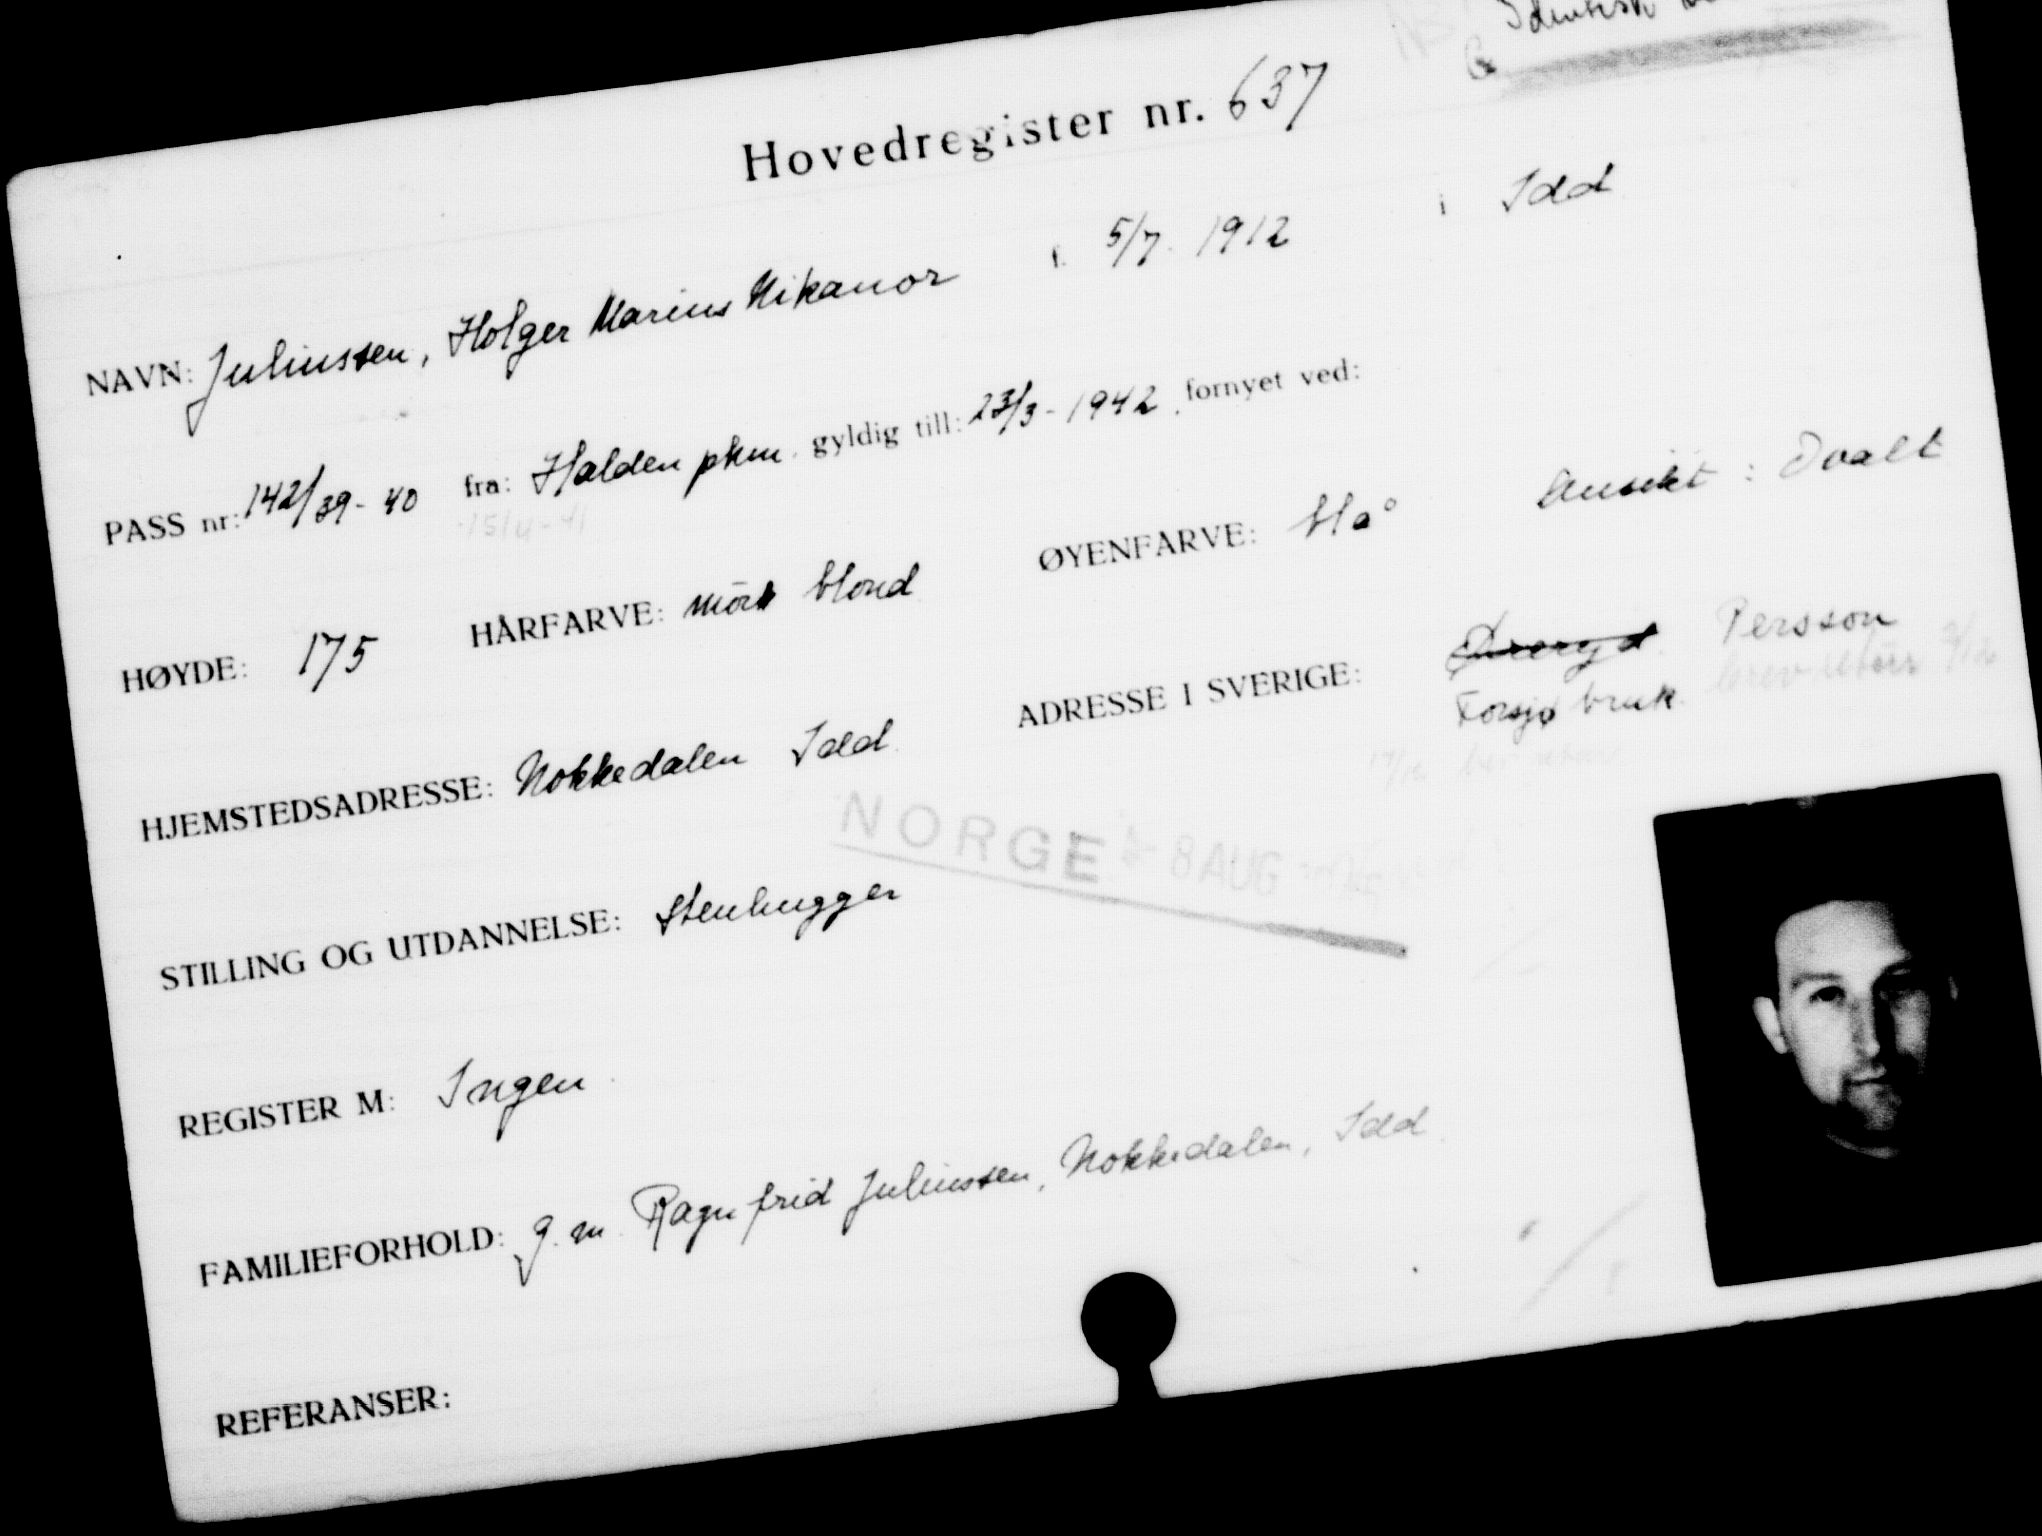 Identisk
Hovedregister nr. 637
NAVN: Juliussen, Holger Marius Nikanor f. 5/7. 1912 i Idd
PASS nr: 142/39-40 fra: Halden pkm. gyldig till: 23/3-1942. fornyet ved:
15/4-41
HØYDE: 175 HÅRFARVE: mörk blond ØYENFARVE: blå Ansikt: Ovalt
HJEMSTEDSADRESSE: Nokkedalen Idd. ADRESSE I SVERIGE: Öreryd. Persson
Forsjø bruk.
NORGE 8 AUG
STILLING OG UTDANNELSE: Stenhugger
REGISTER M: Ingen
FAMILIEFORHOLD: g. m. Ragnfrid Juliussen, Nokkedalen, Idd.
REFERANSER: